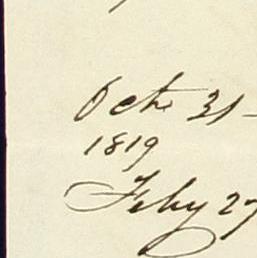 Octr 31 -
1819
Feby 27